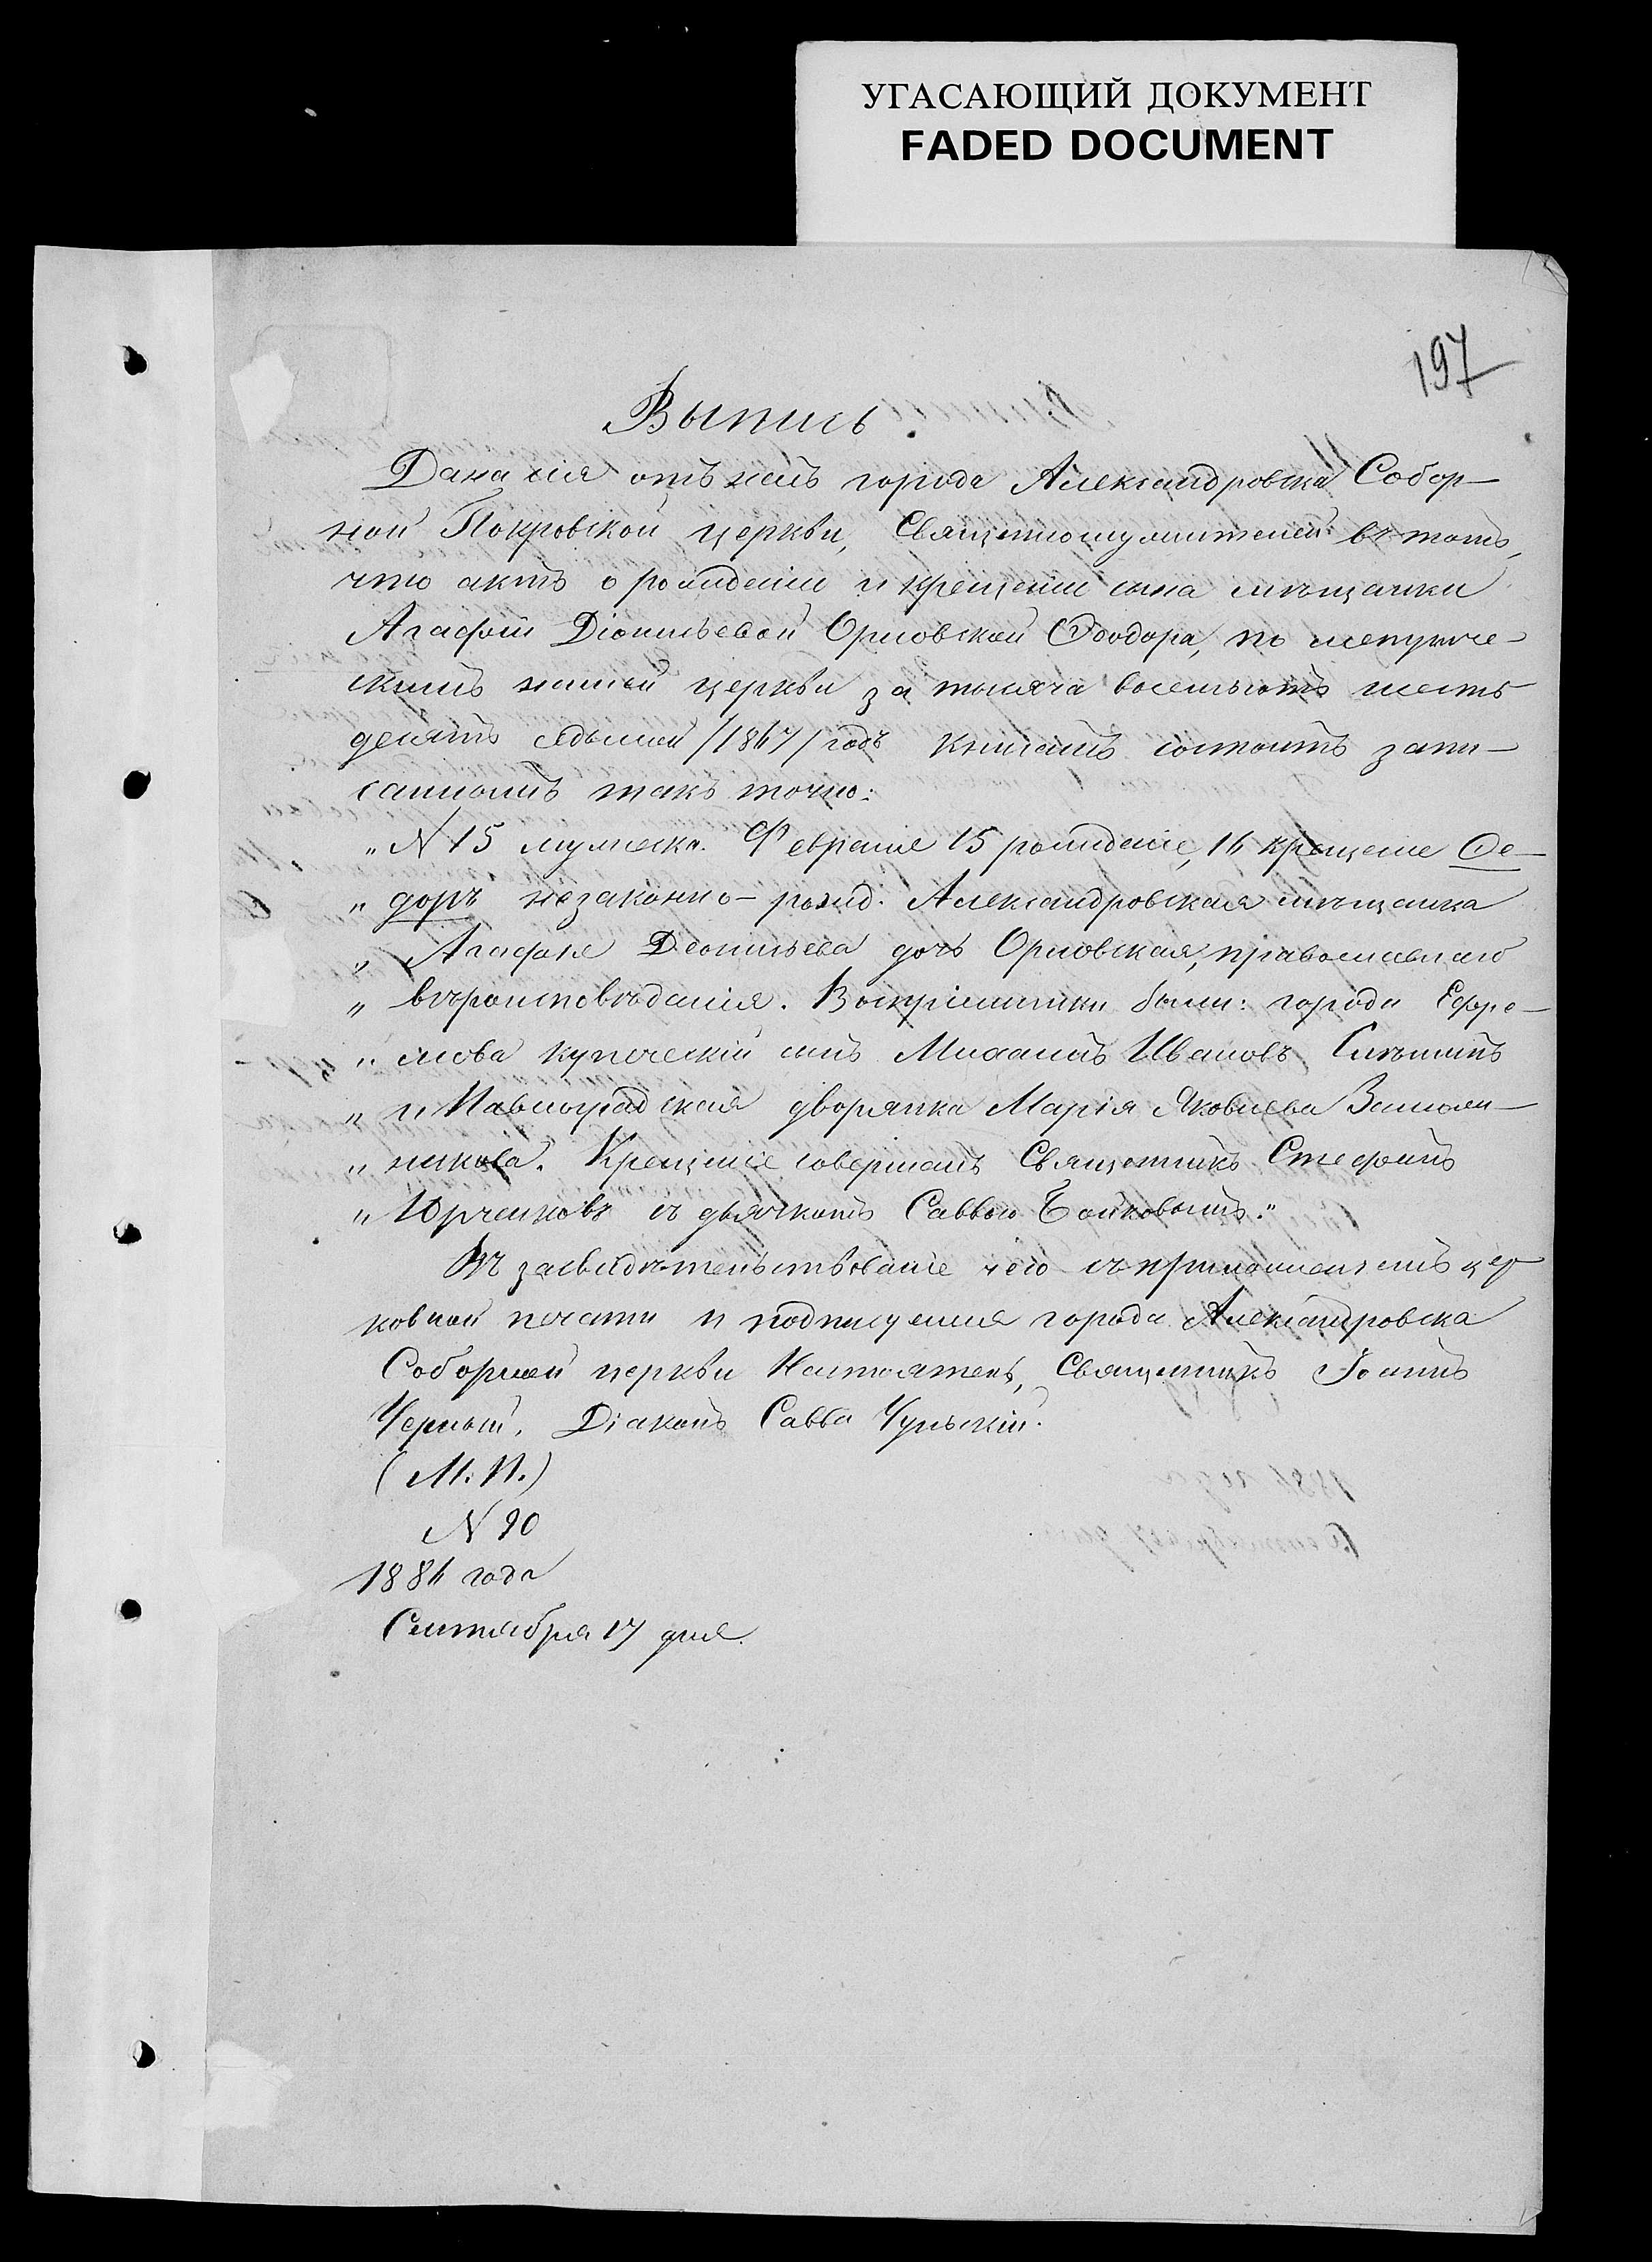 УГАСАЮЩИЙ ДОКУМЕНТ
FADED DOCUMENT
197
Выпись.
Дана сія отъ насъ города Александровска Собор-
ной Покровской церкви, Священнослужителей въ томъ,
что актъ о рожденіи и крещеніи сына мѣщанки
Агафіи Діонисьевой Орловской Ѳеодора, по метриче-
скимъ нашей церкви за тысяча восемьсотъ шесть
десятъ седьмой /1867/ годъ книгамъ состоитъ запи-
саннымъ такъ точно:
„ N 15 мужеска. Февраля 15 рожденіе, 16 крещеніе Ѳе-
„ доръ незаконно-рожд. Александровская мѣщанка
„ Агафія Деонисьева дочь Орловская, православнаго
„ вѣроисповѣданія. Воспріемники были: города Ефре-
„ мова купеческій сынъ Михаилъ Ивановъ
„ и Павлоградская дворянка Марія Яковлева
„ никова. Крещеніе совершалъ Священникъ Стефанъ
„ Юрченковъ съ дьячкомъ Саввою Бойковымъ."
Въ засвидѣтельствованіе чего съ приложеніемъ цер
ковной печати и подписуемся города Александровска
Соборной церкви Настоятель, Священникъ Іоаннъ
Черный, Діаконъ Савва
(М. П.)
N 90
1886 года
Сентября 17 дня.